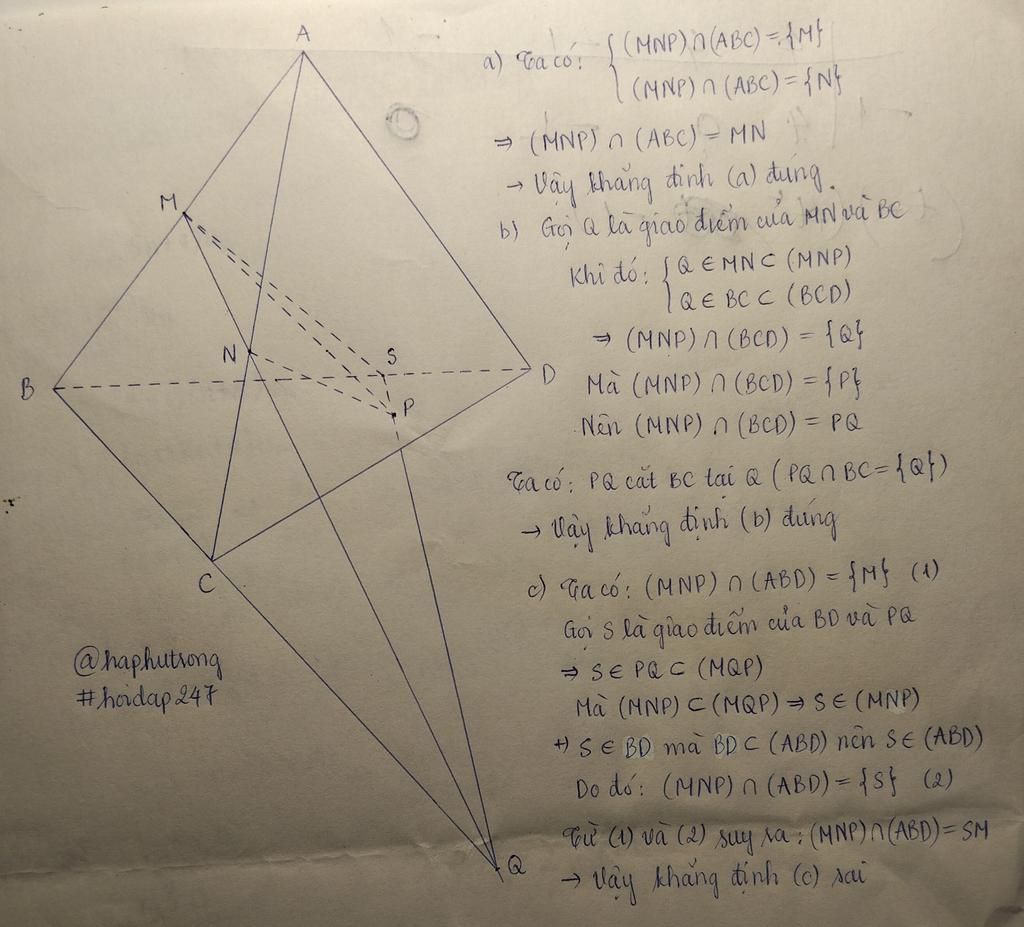 A
M
N
B
S
D
P
C
Q
@haphutsong
#hoidap247
a) Ta có: { (MNP) ∩ (ABC) = {M}
(MNP) ∩ (ABC) = {N}
⇒ (MNP) ∩ (ABC) = MN
→ Vậy khẳng định (a) đúng.
b) Gọi Q là giao điểm của MN và BC
Khi đó: { Q ∈ MN ⊂ (MNP)
Q ∈ BC ⊂ (BCD)
⇒ (MNP) ∩ (BCD) = {Q}
Mà (MNP) ∩ (BCD) = {P}
Nên (MNP) ∩ (BCD) = PQ
Ta có: PQ cắt BC tại Q (PQ ∩ BC = {Q})
→ Vậy khẳng định (b) đúng
c) Ta có: (MNP) ∩ (ABD) = {M} (1)
Gọi S là giao điểm của BD và PQ
⇒ S ∈ PQ ⊂ (MQP)
Mà (MNP) ⊂ (MQP) ⇒ S ∈ (MNP)
+) S ∈ BD mà BD ⊂ (ABD) nên S ∈ (ABD)
Do đó: (MNP) ∩ (ABD) = {S} (2)
Từ (1) và (2) suy ra: (MNP) ∩ (ABD) = SM
→ Vậy khẳng định (c) sai